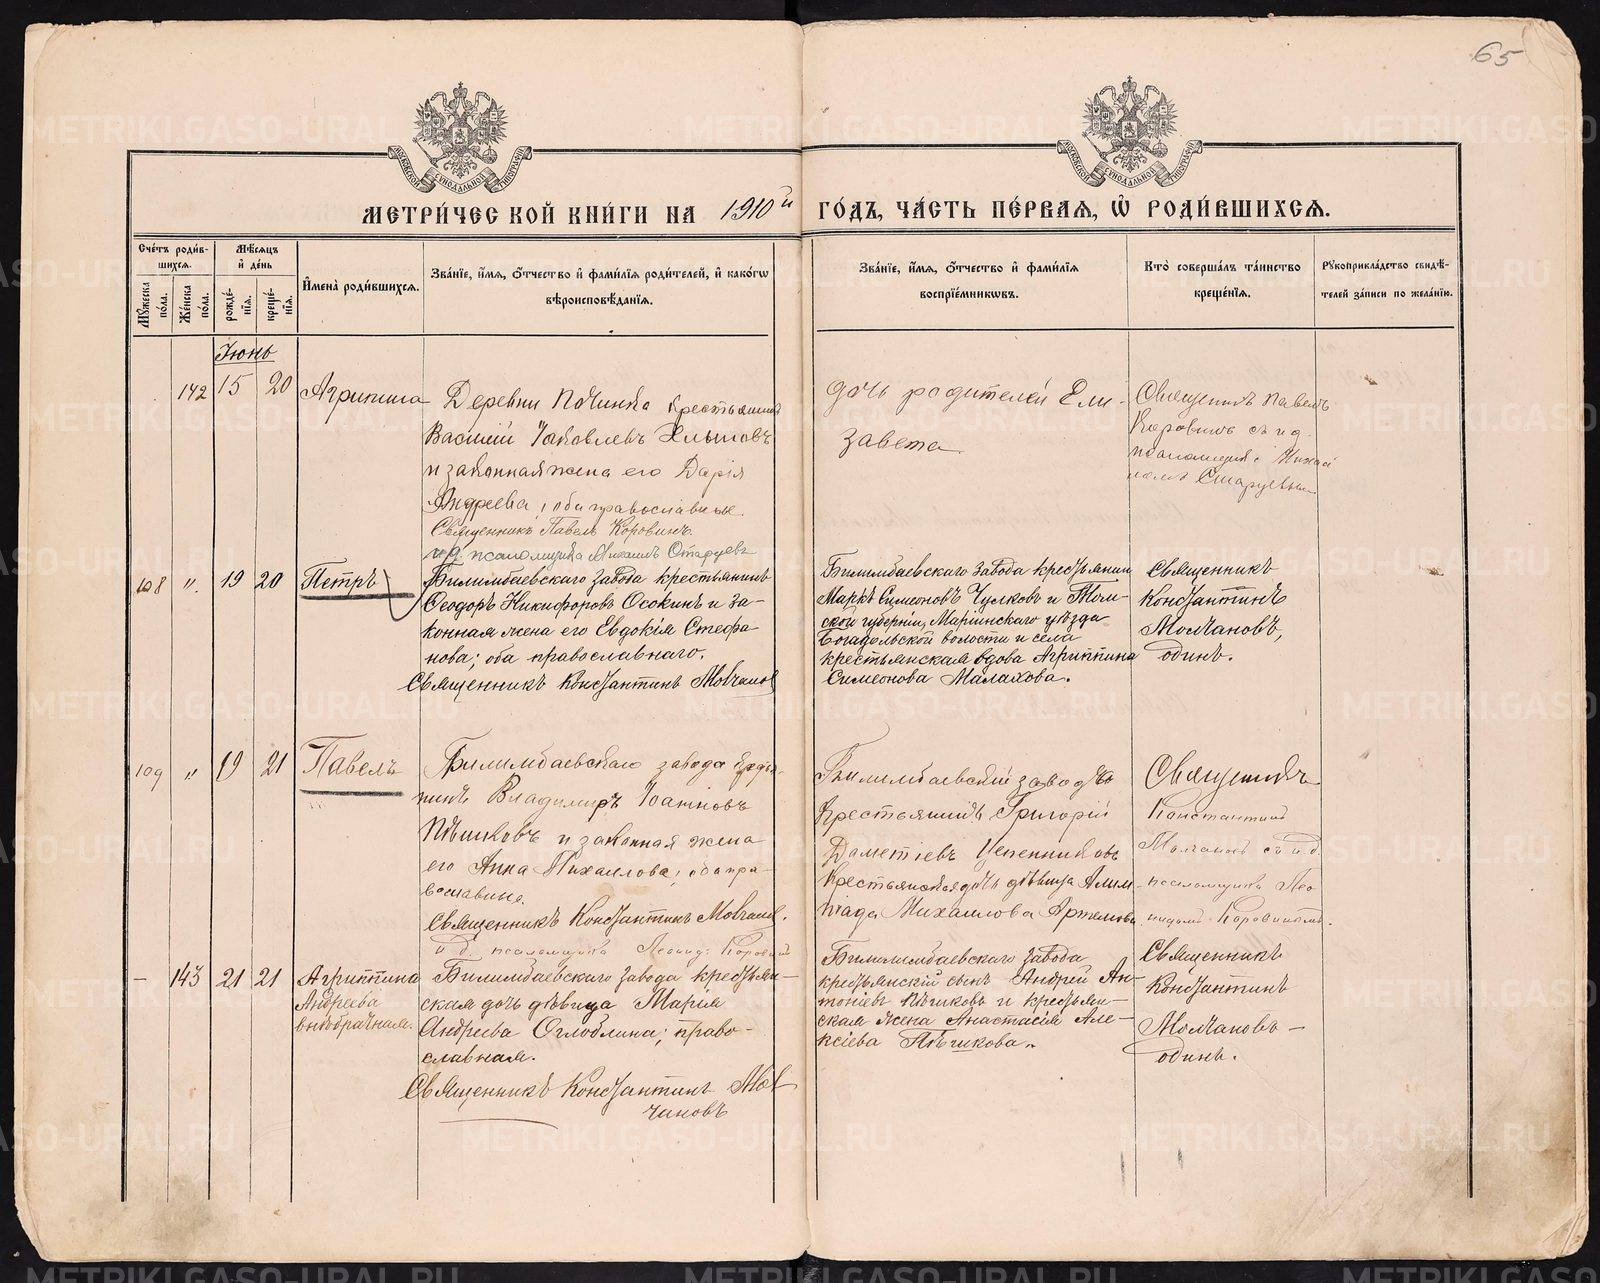 65
МОСКОВСКОЙ СѴНОДАЛЬНОЙ ТИПОГРАФІИ
МОСКОВСКОЙ СѴНОДАЛЬНОЙ ТИПОГРАФІИ
МЕТРИ́ЧЕСКОЙ КНИ́ГИ НА 1910й ГО́ДЪ, ЧА́СТЬ ПЕ́РВАѦ, Ѽ РОДИ́ВШИХСѦ.
Сче́тъ роди́в-
шихсѧ.
Мꙋ́жеска по́ла.
Же́нска по́ла.
Мѣ́сѧцъ
и҆ де́нь
рожде́-
нїѧ.
креще́-
нїѧ.
И҆мена̀ роди́вшихсѧ.
Зва́нїе, и҆́мѧ, ѻ҆́тчество и҆ фами́лїѧ роди́телей, и҆ како́гѡ
вѣроисповѣ́данїѧ.
Зва́нїе, и҆́мѧ, ѻ҆́тчество и҆ фами́лїѧ
воспрїе́мникѡвъ.
Кто̀ соверша́лъ та́инство
креще́нїѧ.
Рꙋкоприкла́дство свидѣ́-
телей за́писи по жела́нїю.
Іюнь
142 15 20 Агрипина
Деревни Починка крестьянинъ
Василій Іаковлевъ
и законная жена его Дарія
Андреева, оба православные.
Священникъ Павелъ Коровинъ
и.д. псаломщика Михаилъ Старцевъ
дочь родителей Ели-
завета
Священникъ Павелъ
Коровинъ съ и.д.
псаломщика Михаи
ломъ Старцевым
108 " 19 20 Петръ
Билимбаевскаго завода крестьянинъ
Ѳеодоръ Никифоровъ Осокинъ и за-
конная жена его Евдокія Стефа
нова; оба православнаго.
Священникъ Константинъ Молчанов
Билимбаевскаго завода крестьянин
Маркъ Симеоновъ Чулковъ и Том-
ской губерніи, Маріинскаго уѣзда
Боготольской волости и села
крестьянская вдова Агриппина
Симеонова Малахова.
Священникъ
Константинъ
Молчановъ,
одинъ.
109 " 19 21 Павелъ
Билимбаевскаго завода крестья-
нинъ Владимиръ Іоанновъ
Пѣшковъ и законная жена
его Анна Михаилова; оба пра-
вославные.
Священникъ Константинъ Молчанов.
и.д. псаломщика Леонид Коровин
Билимбаевскій завода
Крестьянинъ Григорій
Дометіевъ Цепенниковъ
Крестьянская дочь дѣвица Алим-
піада Михаилова Артемова
Священникъ
Константин
Молчановъ съ и.д.
псаломщика Лео
нидомъ Коровиномъ.
— 143 21 21 Агриппина
Андреева
внѣбрачная.
Билимбаевскаго завода крестьян—
ская дочь дѣвица Марія
Андреева Оглоблина; право-
славная.
Священникъ Константинъ Мол
чановъ
Билимбаевскаго завода
крестьянскій сынъ Андрей Ан-
тоніевъ Пѣшковъ и крестьян—
ская жена Анастасія Але-
ксіева Пѣшкова.
Священникъ
Константинъ
Молчановъ —
одинъ.
METRIKI.GASO-URAL.RU